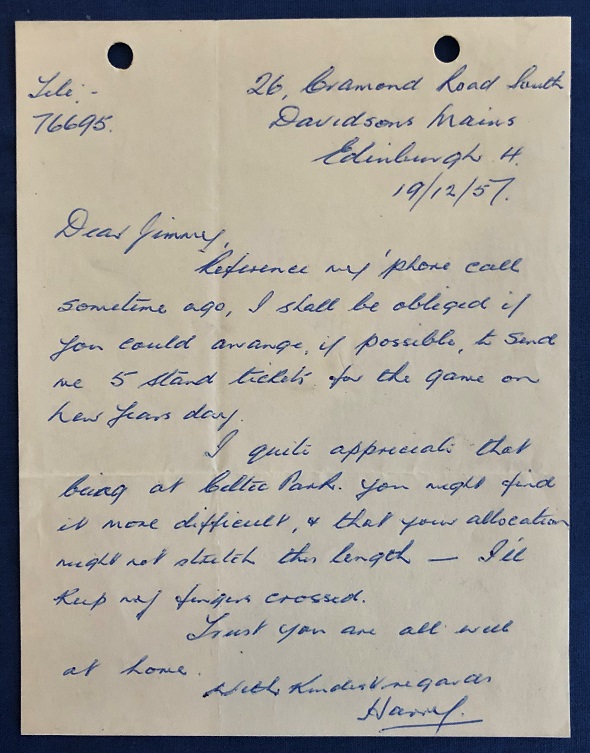 Tele:-
76695.
26, Cramond Road South
Davidsons Mains
Edinburgh 4.
19/12/57.
Dear Jimmy,
Reference my 'phone call
sometime ago, I shall be obliged if
you could arrange, if possible, to send
me 5 stand tickets for the game on
New Years day.
I quite appreciate that
being at Celtic Park. you might find
it more difficult, & that your allocation
might not stretch this length — I'll
keep my fingers crossed.
Trust you are all well
at home.
With Kindest regards
Harry.